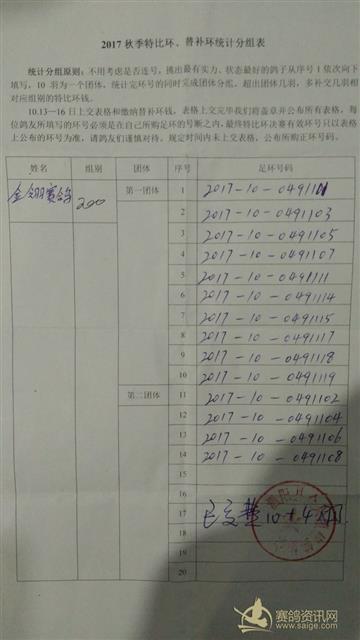 2017 秋季特比环、替补环统计分组表
统计分组原则：不用考虑是否连号，挑出最有实力、状态最好的鸽子从序号 1 依次向下
填写，10 羽为一个团体，统计完环号的同时完成团体分组。超出团体几羽，多补交几羽相
对应组别的特比环钱。
10.13—16 日上交表格和缴纳替补环钱，表格上交完毕我们将盖章并公布所有表格，每
位鸽友所填写的环号必须是在自己所购足环的号断之内，最终特比环决赛有效环号只以表格
上公布的环号为准，请鸽友们谨慎对待。规定时间内未上交表格，公布所购正环号码。
姓名 组别 团体 序号 足环号码
金翎赛鸽 200 第一团体 1
2 2017-10-0491103
3 2017-10-0491105
4 2017-10-0491107
5
6 2017-10-0491114
7 2017-10-0491115
8 2017-10-0491117
9 2017-10-0491118
10 2017-10-0491119
第二团体 11 2017-10-0491102
12 2017-10-0491104
13 2017-10-0491106
14 2017-10-0491108
15
16
17 已交 10+4
18
19
20
赛鸽资讯网
www.saige.com